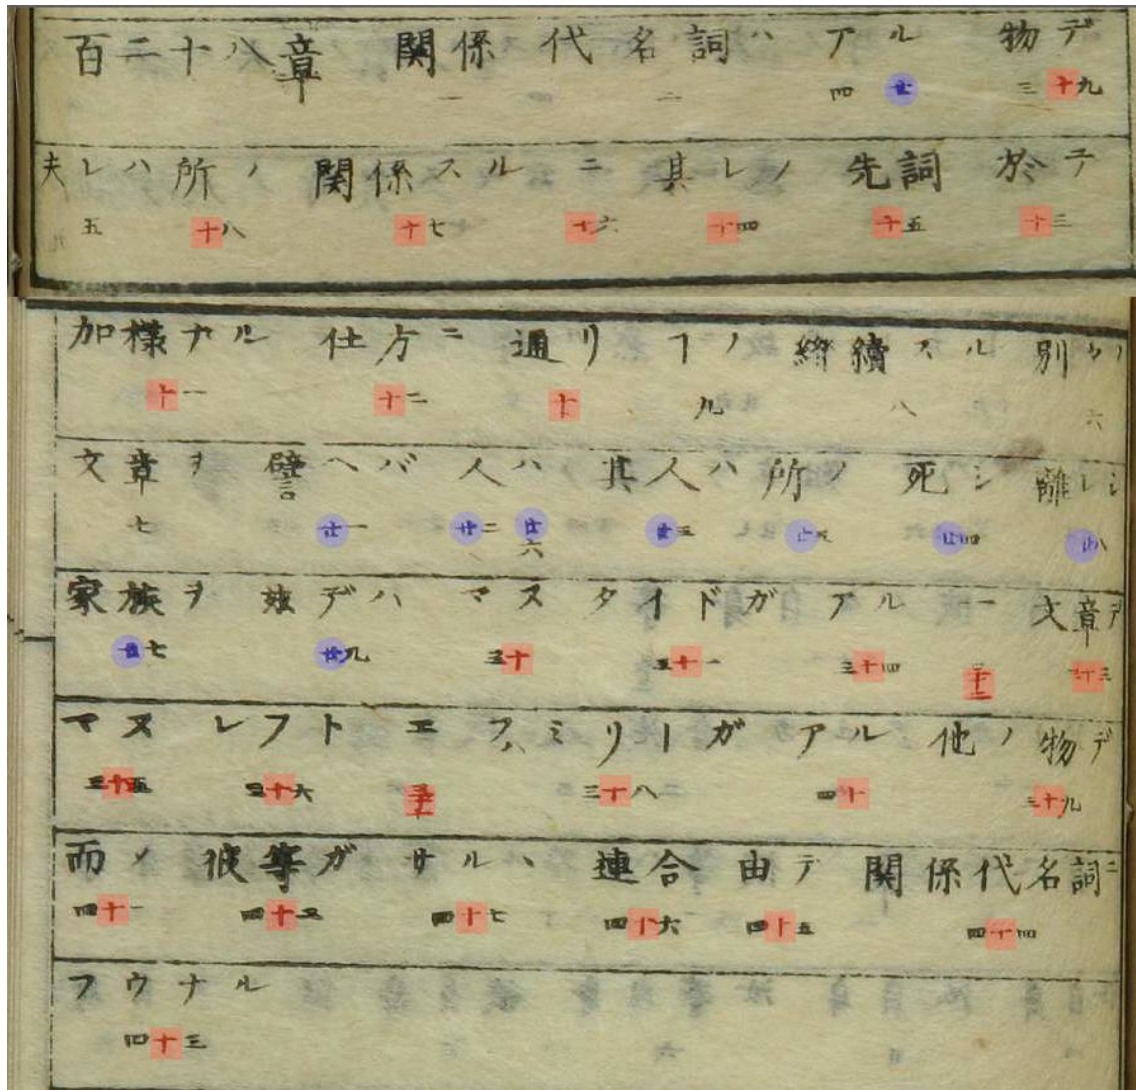 百二十八章 関係代名詞ハ アル 物デ
一 二 四 廿 三 十九
夫レハ 所ノ 関係スル ニ 其レノ 先詞 於テ
五 十八 十七 十六 十四 十五 十三
加様ナル 仕方ニ 通リ ヿノ 継續スル 別々ノ
十一 十二 十 九 八 六
文章ヲ 譬ヘバ 人ハ 其人ハ 所ノ 死シ 離レシ
七 廿一 廿二 廿六 廿三 廿五 廿四 廿八
家族ヲ 玆デハ マヌ タイドガ アル 一 文章デ
廿七 廿九 三十 三十一 三十四 三十二 三十三
マヌ レフト エ フハミリーガ アル 他ノ 物デ
三十五 三十六 三十八 四十 三十九
而メ 彼等ガ サルヽ 連合 由テ 関係代名詞ニ
四十一 四十二 四十七 四十六 四十五 四十四
フウナル
四十三